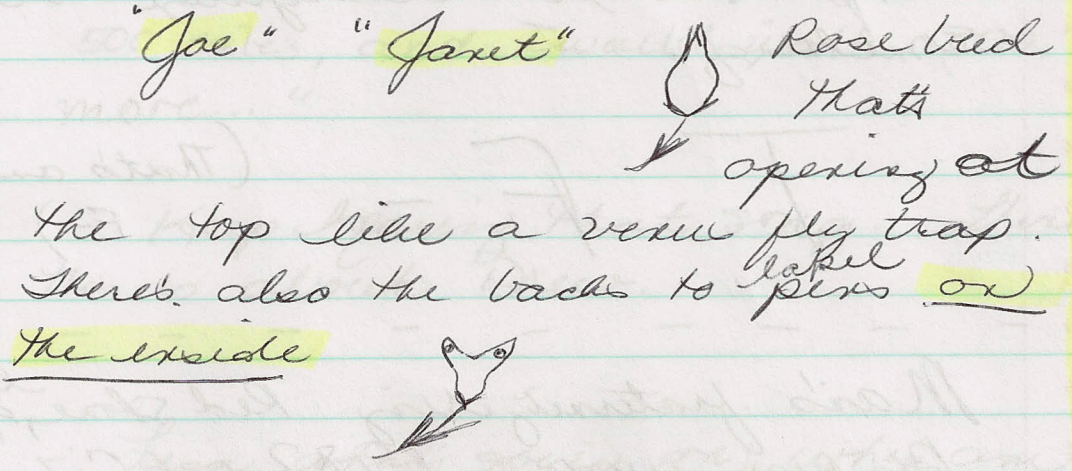 "Joe" "Janet" Rose bud
that's
opening at
the top like a venus fly trap.
There's also the backs to label pins on
the inside